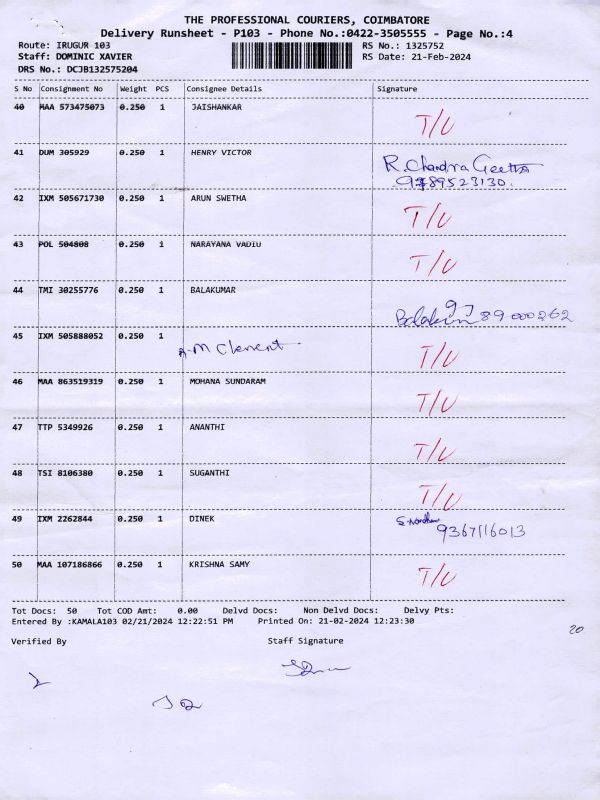 THE PROFESSIONAL COURIERS, COIMBATORE
Delivery Runsheet - P103 - Phone No.:0422-3505555 - Page No.:4
Route: IRUGUR 103 RS No.: 1325752
Staff: DOMINIC XAVIER RS Date: 21-Feb-2024
DRS No.: DCJB132575204
S No Consignment No Weight PCS Consignee Details Signature
40 MAA 573475073 0.250 1 JAISHANKAR T/U
41 DUM 305929 0.250 1 HENRY VICTOR R. Chandra Geetha
9789523130.
42 IXM 505671730 0.250 1 ARUN SWETHA T/U
43 POL 504808 0.250 1 NARAYANA VADIU T/U
44 TMI 30255776 0.250 1 BALAKUMAR
97
89000262
45 IXM 505888052 0.250 1 A-M Clement T/U
46 MAA 863519319 0.250 1 MOHANA SUNDARAM T/U
47 TTP 5349926 0.250 1 ANANTHI T/U
48 TSI 8106380 0.250 1 SUGANTHI T/U
49 IXM 2262844 0.250 1 DINEK
9367116013
50 MAA 107186866 0.250 1 KRISHNA SAMY T/U
Tot Docs: 50 Tot COD Amt: 0.00 Delvd Docs: Non Delvd Docs: Delvy Pts:
Entered By :KAMALA103 02/21/2024 12:22:51 PM Printed On: 21-02-2024 12:23:30
Verified By Staff Signature
20